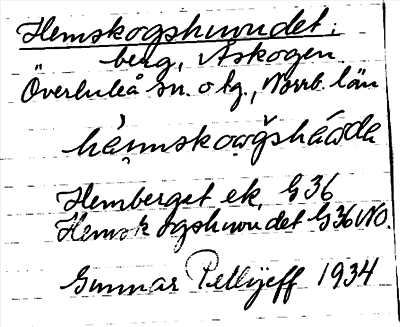 Hemskogshuvudet,
berg, Åskogen
Överluleå sn. o tg., Norrb. län
Hemberget ek. G36
Hemskogshuvudet G36NO.
Gunnar Pellijeff 1934